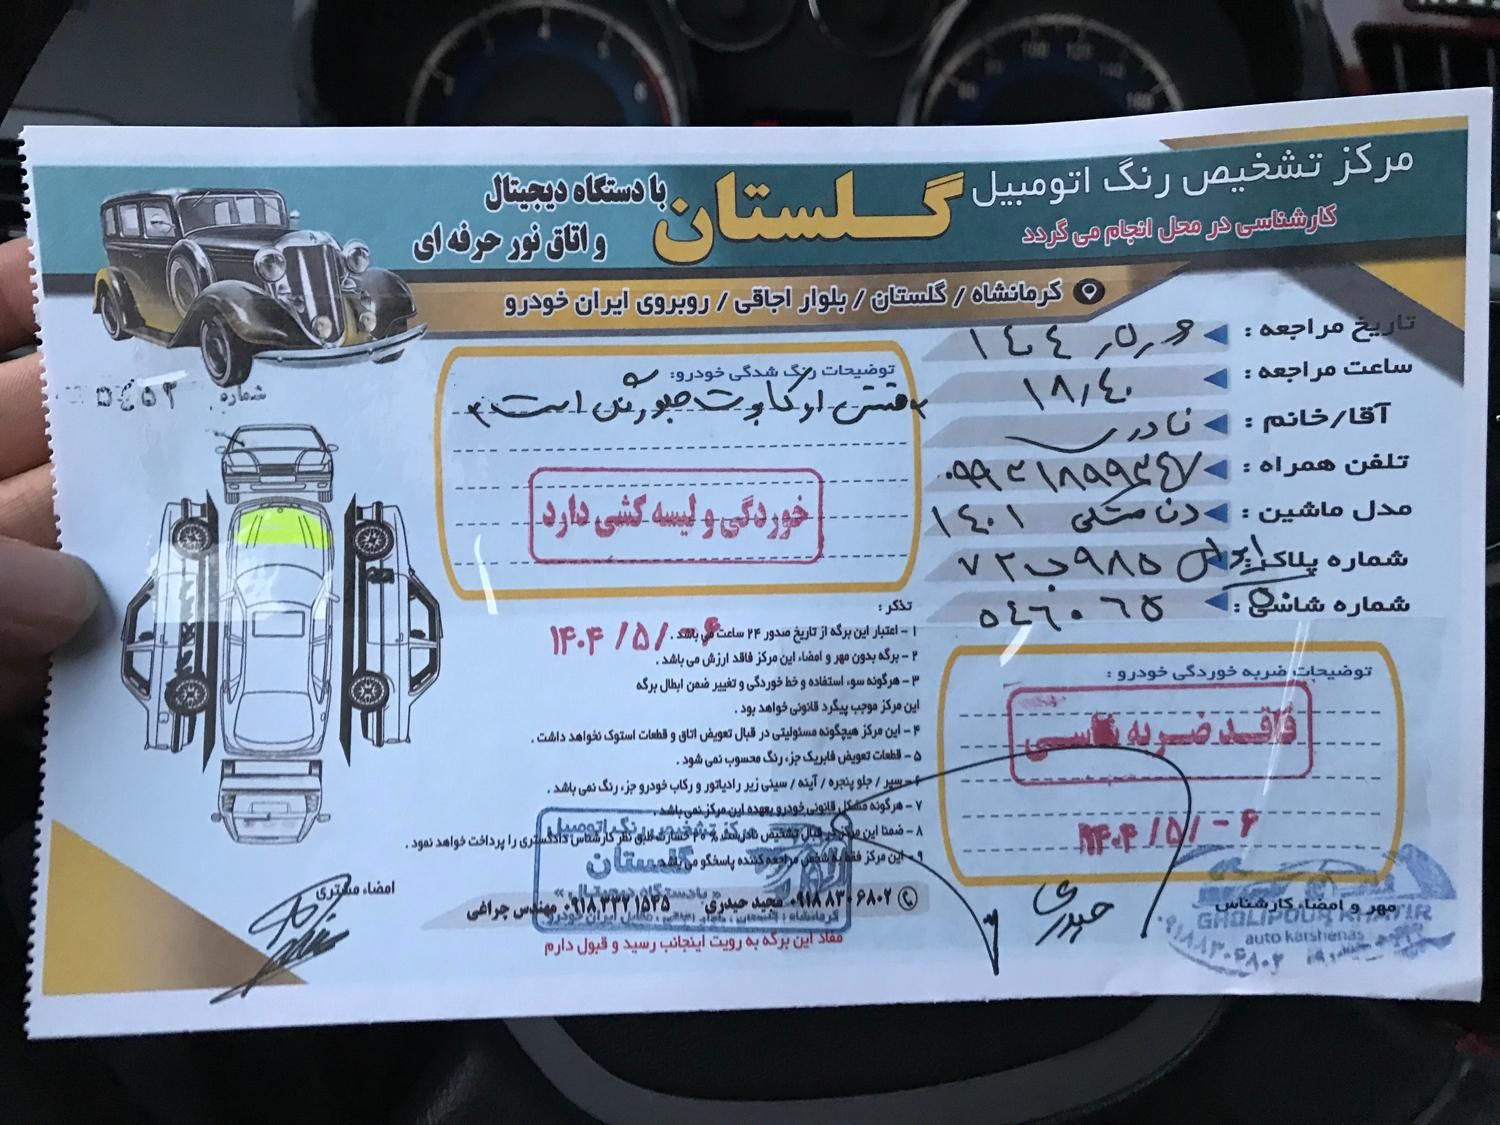 مرکز تشخیص رنگ اتومبیل گلستان با دستگاه دیجیتال
و اتاق نور حرفه ای
کارشناسی در محل انجام می گردد
کرمانشاه / گلستان / بلوار اجاقی / روبروی ایران خودرو
تاریخ مراجعه :
ساعت مراجعه : ۱۸,۴۰
آقا/خانم : نادری
تلفن همراه :
مدل ماشین : دنا مشکی ۱۴۰۱
شماره پلاک : ۹۸۵ب۷۲
شماره شاسی : ۵۴۶۰۶۵
شماره
توضیحات رنگ شدگی خودرو:
است
خوردگی و لیسه کشی دارد
توضیحات ضربه خوردگی خودرو :
فاقد ضربه شاسی
۱۴۰۴/۵/۰۶
تذکر :
۱ - اعتبار این برگه از تاریخ صدور ۲۴ ساعت می باشد .
۱۴۰۴/۵/۰۶
۲ - برگه بدون مهر و امضاء این مرکز فاقد ارزش می باشد .
۳ - هرگونه سوء استفاده و خط خوردگی و تغییر ضمن ابطال برگه
این مرکز موجب پیگرد قانونی خواهد بود .
۴ - این مرکز هیچگونه مسئولیتی در قبال تعویض اتاق و قطعات استوک نخواهد داشت .
۵ - قطعات تعویض فابریک جزء رنگ محسوب نمی شود .
۶ - سپر / جلو پنجره / آینه / سینی زیر رادیاتور و رکاب خودرو جزء رنگ نمی باشد .
۷ - هرگونه مشکل قانونی خودرو بعهده این مرکز نمی باشد .
۸ - ضمنا این مرکز در قبال تشخیص نادرست ۲۰٪ خسارت طبق نظر کارشناس دادگستری را پرداخت خواهد نمود .
۹ - این مرکز فقط به شخص مراجعه کننده پاسخگو می باشد
گلستان
۰۹۱۸ ۸۳۰ ۶۸۰۲ مجید حیدری ۰۹۱۸ ۳۳۲ ۱۵۳۵ مهندس چراغی
مفاد این برگه به رویت اینجانب رسید و قبول دارم
امضاء مشتری
مهر و امضاء کارشناس
حیدری
auto karshenas